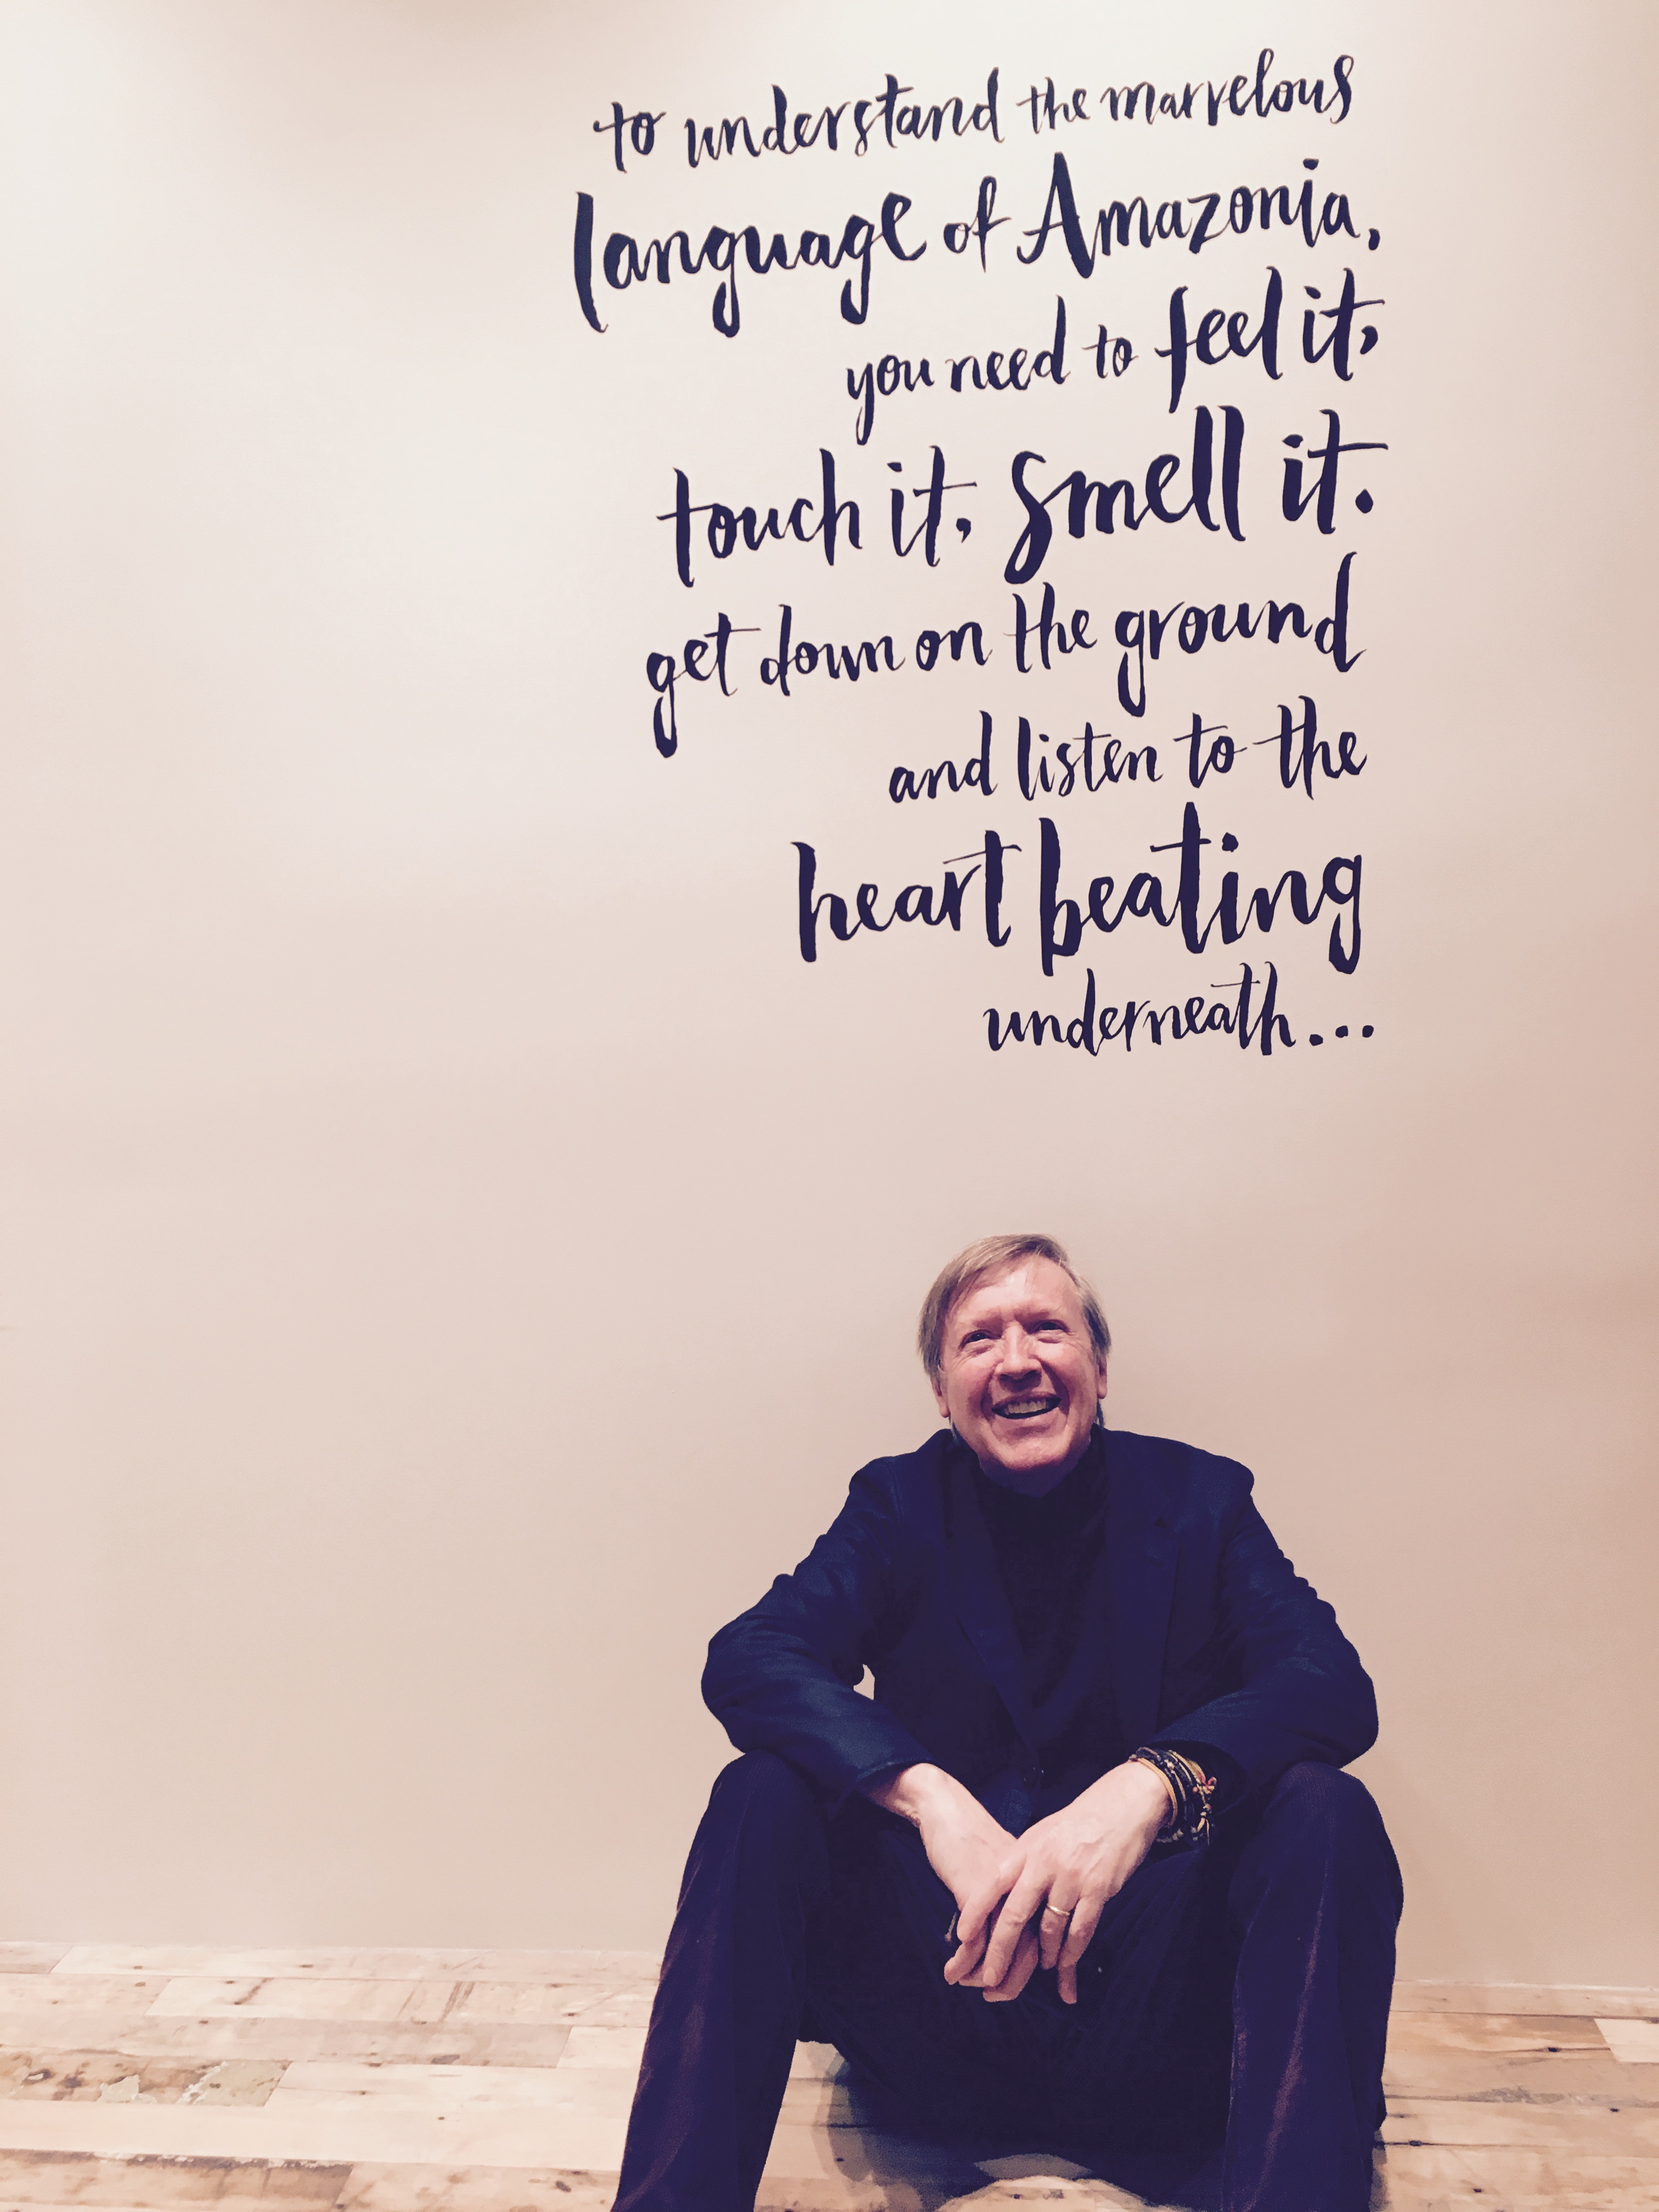 to understand the marvelous
language of Amazonia,
you need to feel it,
touch it, smell it.
get down on the ground
and listen to the
heart beating
underneath...